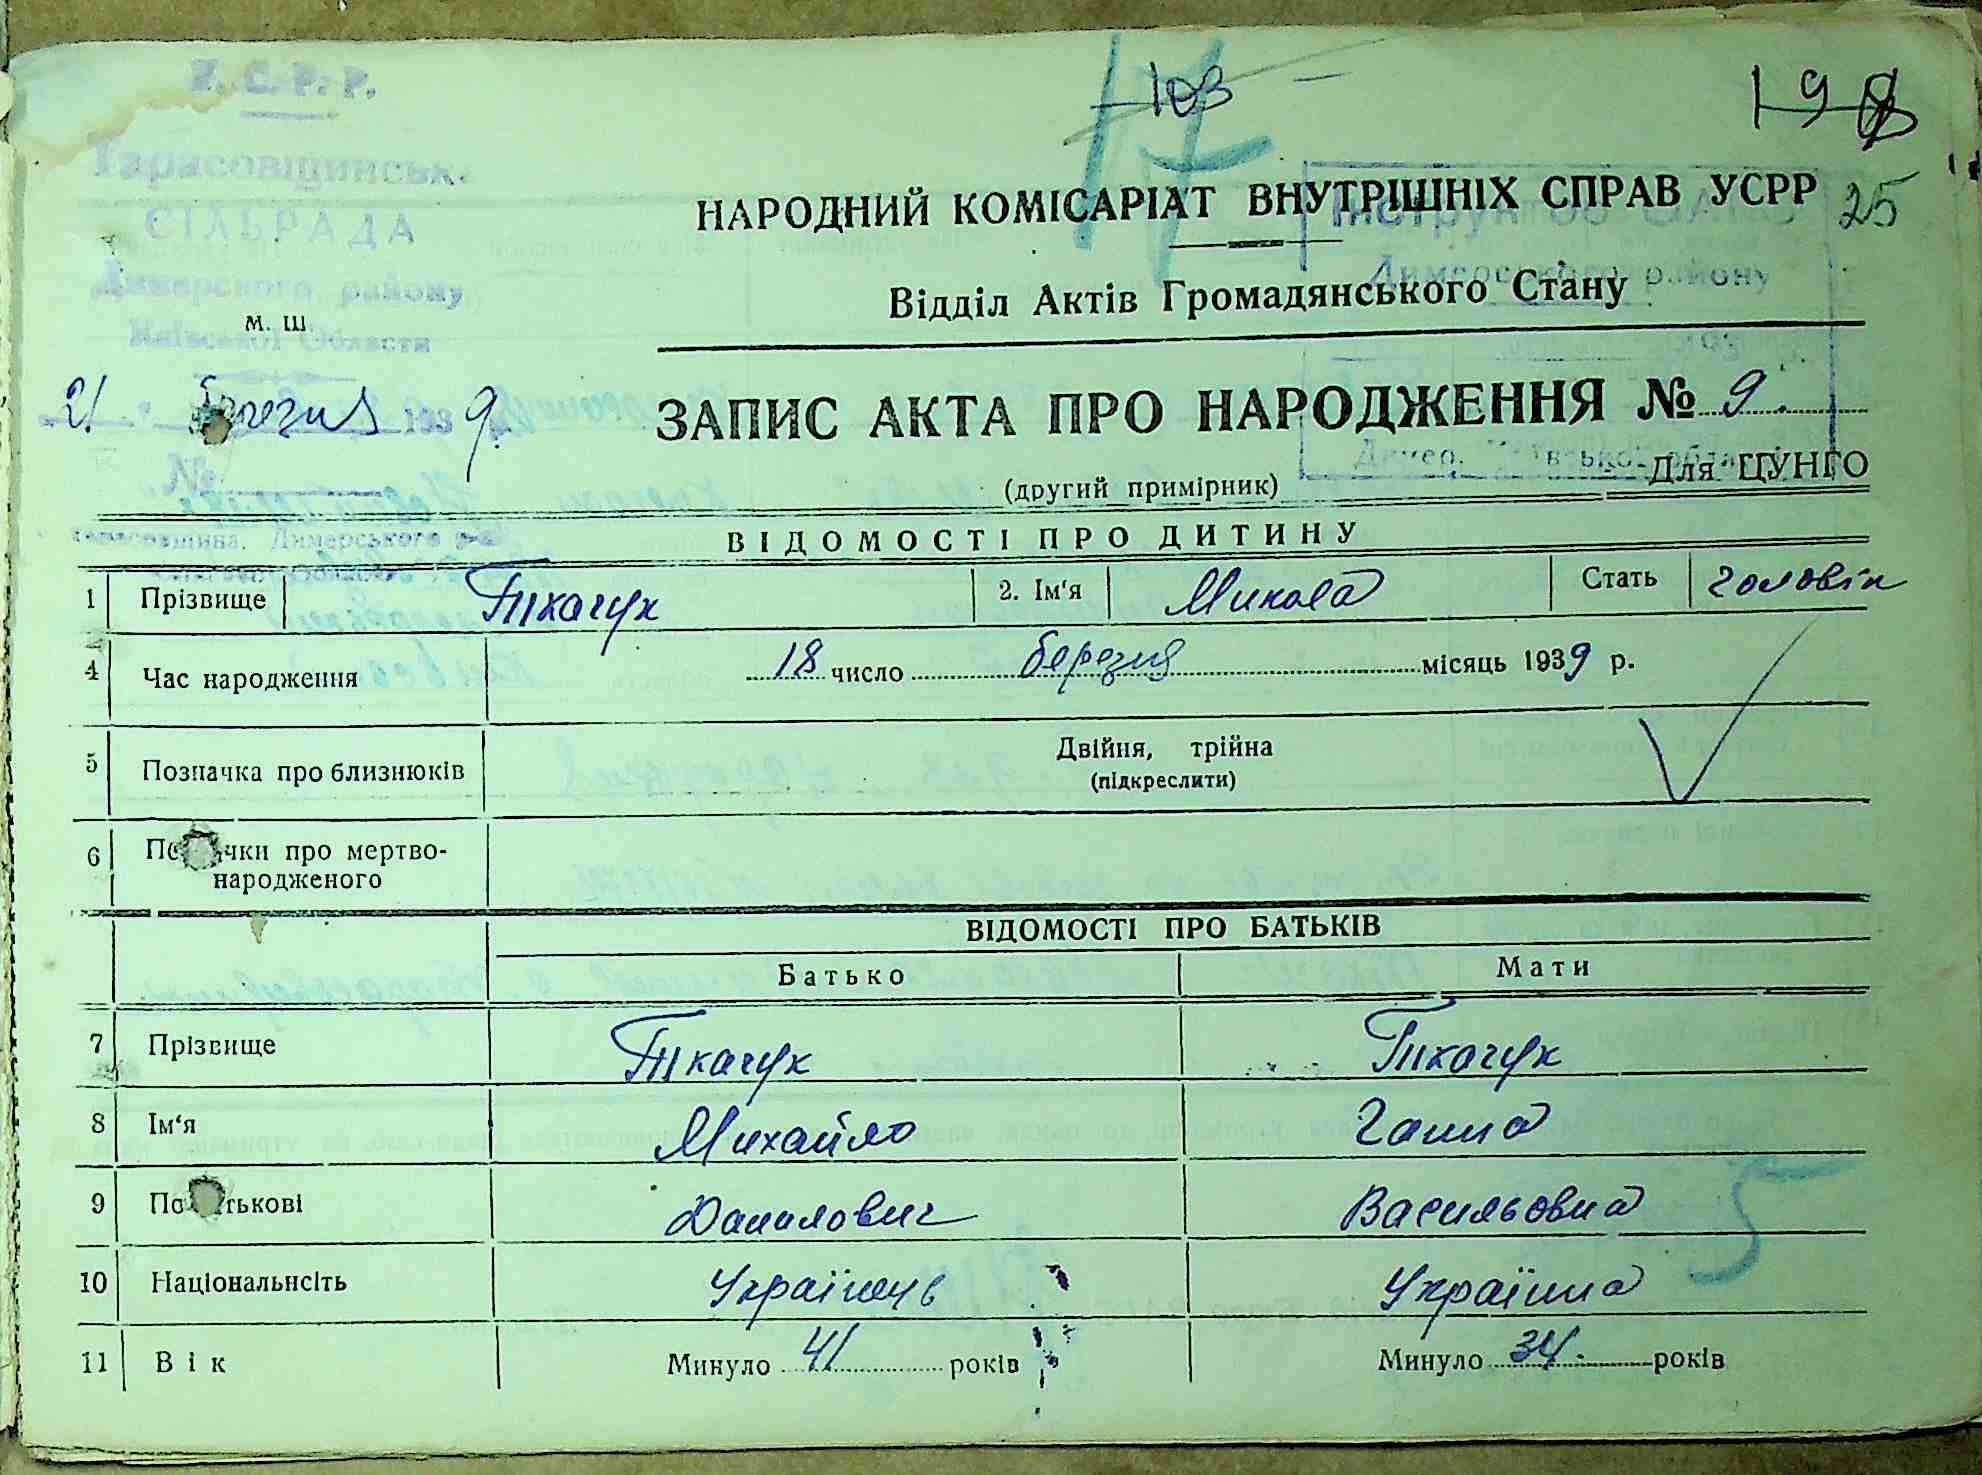 У. С. Р. Р.
17
103
198
Тарасовщинськ.
СІЛЬРАДА
Димерського району
Київської Области
НАРОДНИЙ КОМІСАРІАТ ВНУТРІШНІХ СПРАВ УСРР
25
Димерського району
Відділ Актів Громадянського Стану
м. ш.
21 березня 1939
ЗАПИС АКТА ПРО НАРОДЖЕННЯ № 9.
№
(другий примірник)
Для ЦУНГО
ВІДОМОСТІ ПРО ДИТИНУ
1 Прізвище Ткачук 2. Ім'я Микола Стать чоловік
4 Час народження 18 число березня місяць 1939 р.
5 Позначка про близнюків Двійня, трійна
(підкреслити)
6 По чки про мертво-
народженого
ВІДОМОСТІ ПРО БАТЬКІВ
Батько Мати
7 Прізвище Ткачук Ткачук
8 Ім'я Михайло Ганна
9 По тькові Данилович Васильовна
5
10 Національнсіть Українець Українка
11 Вік Минуло 41 років Минуло 34. років